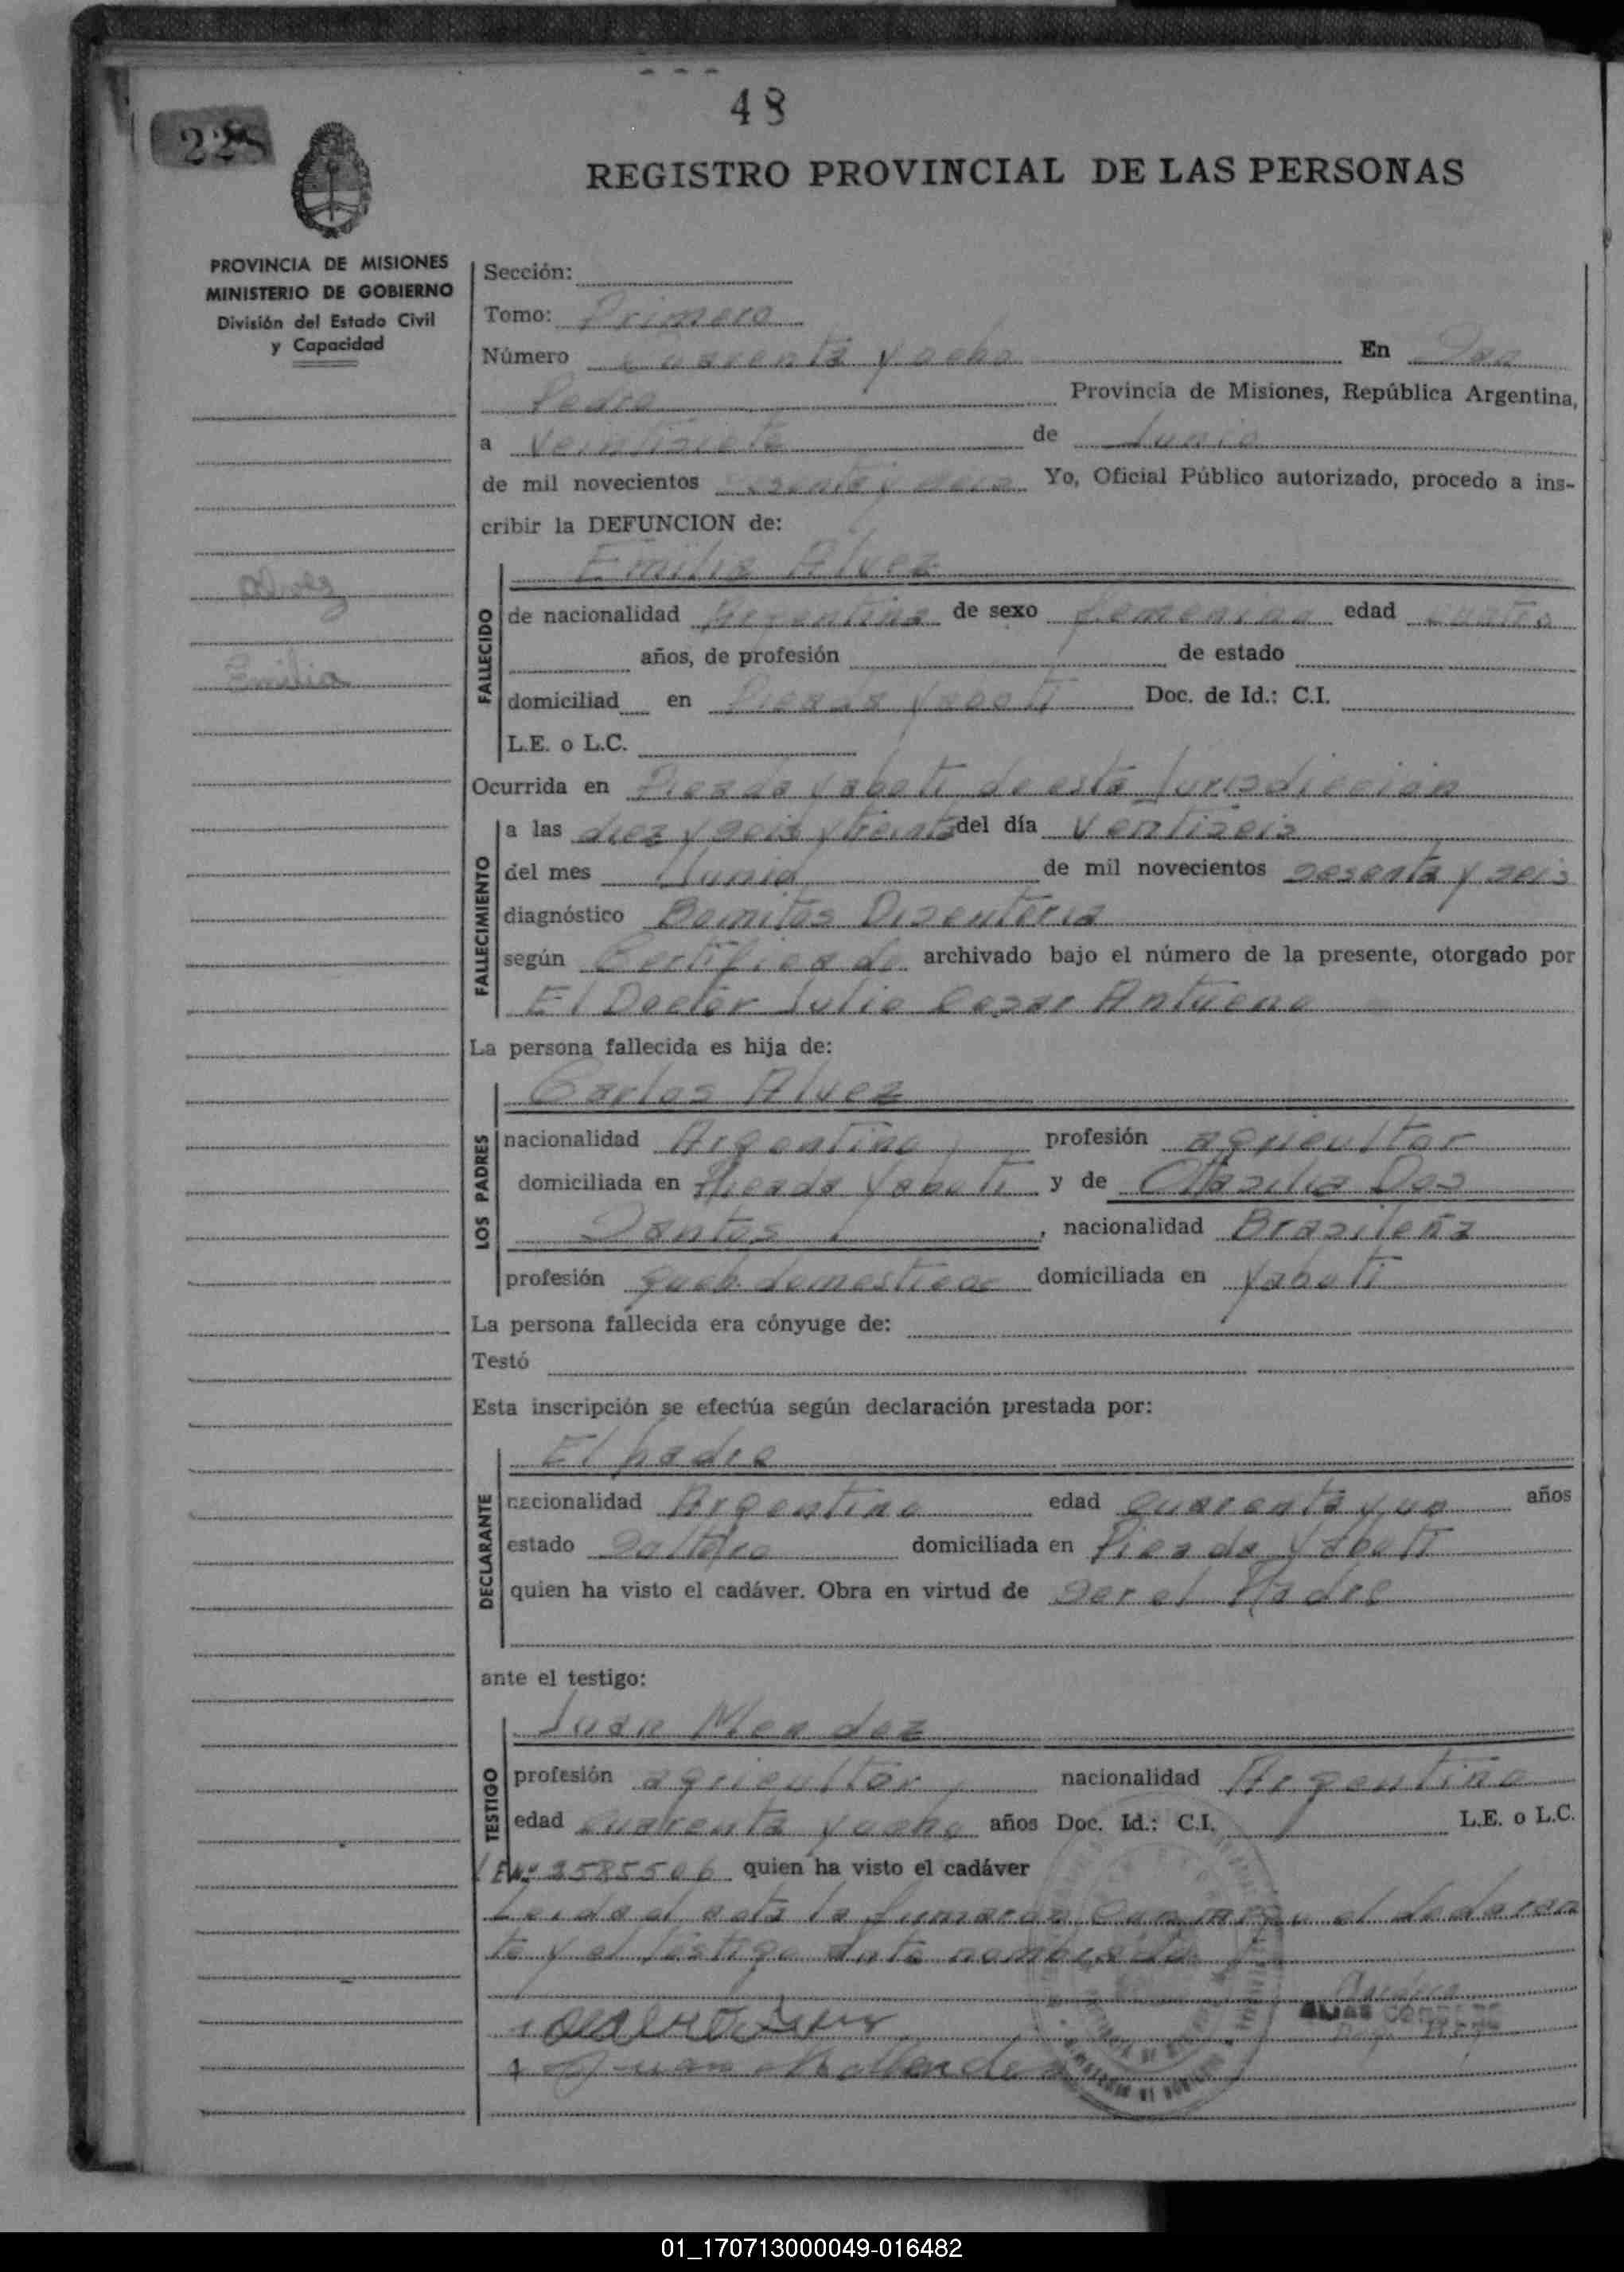 48
228
REGISTRO PROVINCIAL DE LAS PERSONAS
PROVINCIA DE MISIONES
MINISTERIO DE GOBIERNO
División del Estado Civil
y Capacidad
Alvez
Emilia
Sección:
Tomo: Primero
Número cuarenta y ocho En San
Pedro Provincia de Misiones, República Argentina,
a Veintisiete de Junio
de mil novecientos sesenta y seis Yo, Oficial Público autorizado, procedo a ins-
cribir la DEFUNCION de:
FALLECIDO
Emilia Alvez
de nacionalidad Argentina de sexo femenino edad cuatro
años, de profesión de estado
domiciliad en Picada Yaboti Doc. de Id.: C.I.
L.E. o L.C.
Ocurrida en Picada Yaboti de esta Jurisdiccion
FALLECIMIENTO
a las diez y seis y treinta del día Ventiseis
del mes Junio de mil novecientos sesenta y seis
diagnóstico Bomitos Disenteria
según Certificado archivado bajo el número de la presente, otorgado por
El Doctor Julio Cesar Antueno
La persona fallecida es hija de:
LOS PADRES
Carlos Alvez
nacionalidad Argentino profesión agricultor
domiciliada en Picada Yaboti y de Otazilia Dos
Santos, nacionalidad Brazileña
profesión queh. domesticos domiciliada en Yaboti
La persona fallecida era cónyuge de:
Testó
Esta inscripción se efectúa según declaración prestada por:
DECLARANTE
El padre
nacionalidad Argentino edad cuarenta y un años
estado Soltero domiciliada en Picada Yaboti
quien ha visto el cadáver. Obra en virtud de ser el Padre
ante el testigo:
TESTIGO
Juan Mendez
profesión agricultor nacionalidad Argentino
edad cuarenta y ocho años Doc. Id.: C.I. L.E. o L.C.
L E Nº 3585506 quien ha visto el cadáver
Leida el acta la firmaron conmigo el declaran
te y el testigo ante nombrado
Juan Mendez
01_170713000049-016482